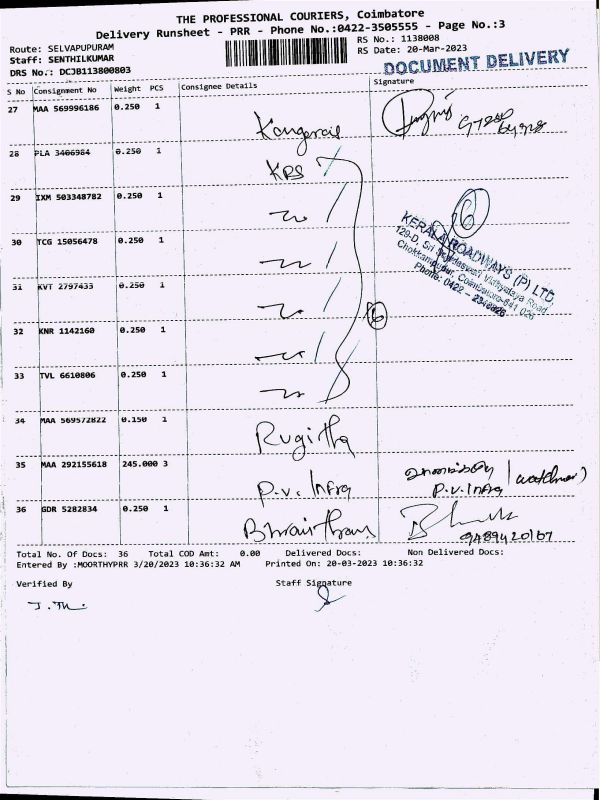 THE PROFESSIONAL COURIERS, Coimbatore
Delivery Runsheet - PRR - Phone No.:0422-3505555 - Page No.:3
Route: SELVAPUPURAM
RS No.: 1138008
Staff: SENTHILKUMAR
RS Date: 20-Mar-2023
DRS No.: DCJB113800803
DOCUMENT DELIVERY
S No Consignment No Weight PCS Consignee Details Signature
27 MAA 569996186 0.250 1
28 PLA 3406984 0.250 1 KRS
29 IXM 503348782 0.250 1
6
KERALA ROADWAYS (P) LTD.
30 TCG 15056478 0.250 1
31 KVT 2797433 0.250 1
6
32 KNR 1142160 0.250 1
33 TVL 6610806 0.250 1
34 MAA 569572822 0.150 1 Rugitha
35 MAA 292155618 245.000 3 P.V. Infra
(watchman)
P.V. Infra
36 GDR 5282834 0.250 1
Total No. Of Docs: 36 Total COD Amt: 0.00 Delivered Docs: Non Delivered Docs:
Entered By :MOORTHYPRR 3/20/2023 10:36:32 AM Printed On: 20-03-2023 10:36:32
Verified By Staff Signature